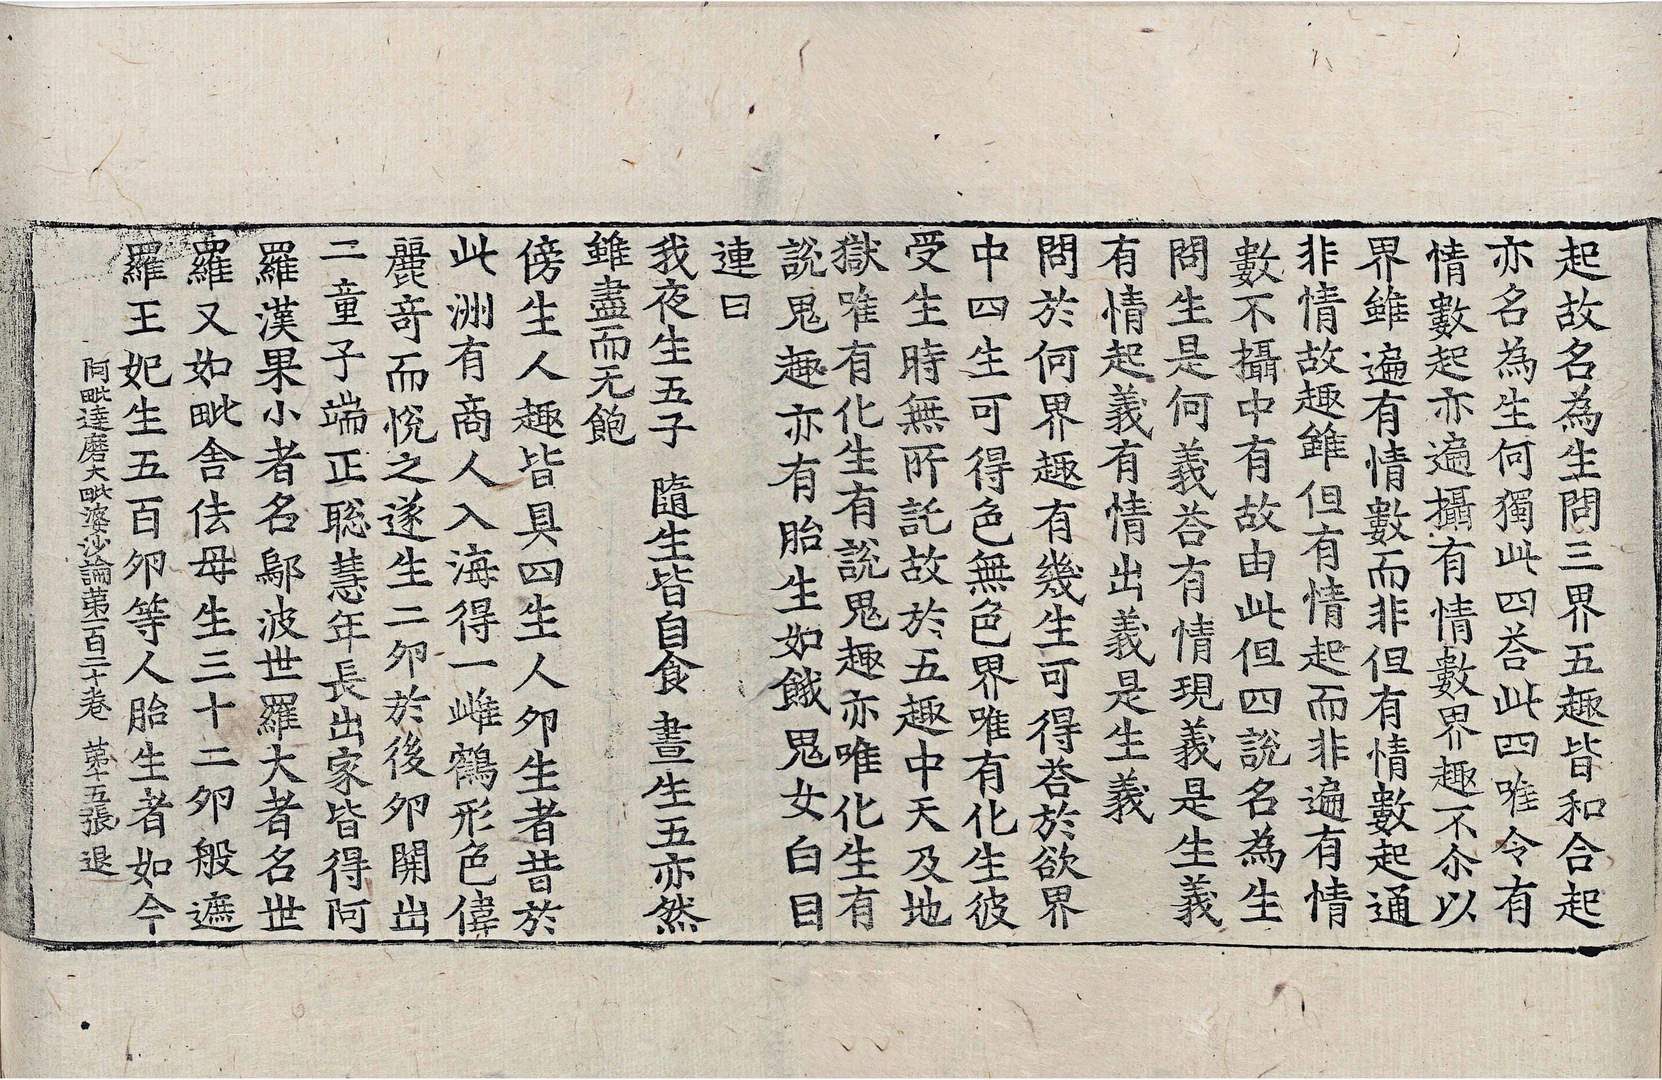 起故名為生問三界五趣皆和合起
亦名為生何獨此四荅此四唯令有
情數起亦遍攝有情數界趣不尒以
界雖遍有情數而非但有情數起通
非情故趣雖但有情起而非遍有情
數不攝中有故由此但四說名為生
問生是何義荅有情現義是生義
有情起義有情出義是生義
問於何界趣有幾生可得荅於欲界
中四生可得色無色界唯有化生彼
受生時無所託故於五趣中天及地
獄唯有化生有說鬼趣亦唯化生有
說鬼趣亦有胎生如餓鬼女白目
連曰
我夜生五子 隨生皆自食 晝生五亦然
雖盡而无飽
傍生人趣皆具四生人卵生者昔於
此洲有商人入海得一雌鶴形色偉
麗竒而恱之遂生二卵於後卵開出
二童子端正聡慧年長出家皆得阿
羅漢果小者名鄔波世羅大者名世
羅又如毗舍佉母生三十二卵般遮
羅王妃生五百卵等人胎生者如今
阿毗達磨大毗婆沙論第一百二十卷 第十五張 退